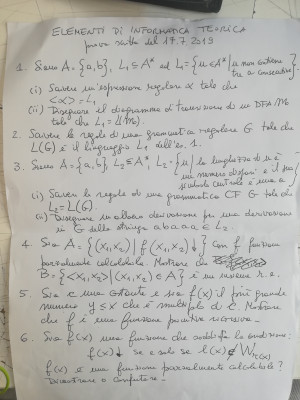 ELEMENTI DI INFORMATICA TEORICA
prova scritta del 17.7.2019
1. Siano A = {a,b}, L₁ ⊆ A* ed L₁ = {u ∈ A* | u non contiene tre a consecutive}
(i) Scrivere un'espressione regolare α tale che
<α> = L₁
(ii) Disegnare il diagramma di transizione di un DFA M
tale che L₁ = L(M).
2. Scrivere le regole di una grammatica regolare G tale che
L(G) è il linguaggio L₁ dell'es. 1.
3. Siano A = {a,b}, L₂ ⊆ A*, L₂ = {u | la lunghezza di u è un numero dispari e il suo simbolo centrale è una a
(i) Scrivere le regole di una grammatica CF G tale che
L₂ = L(G).
(ii) Disegnare un albero di derivazione per una derivazione
in G della stringa a b a a a ∈ L₂.
4. Sia A = {(x₁,x₂) | f(x₁,x₂)↓} con f funzione
parzialmente calcolabile. Mostrare che
B = {<x₁,x₂> | (x₁,x₂) ∈ A} è un insieme r.e.
5. Sia c una costante e sia f(x) il più grande
numero y ≤ x che è multiplo di c. Mostrare
che f è una funzione primitiva ricorsiva.
6. Sia f(x) una funzione che soddisfa la condizione:
f(x)↓ se e solo se l(x) ∉ W
f(x) è una funzione parzialmente calcolabile?
Dimostrare o confutare.